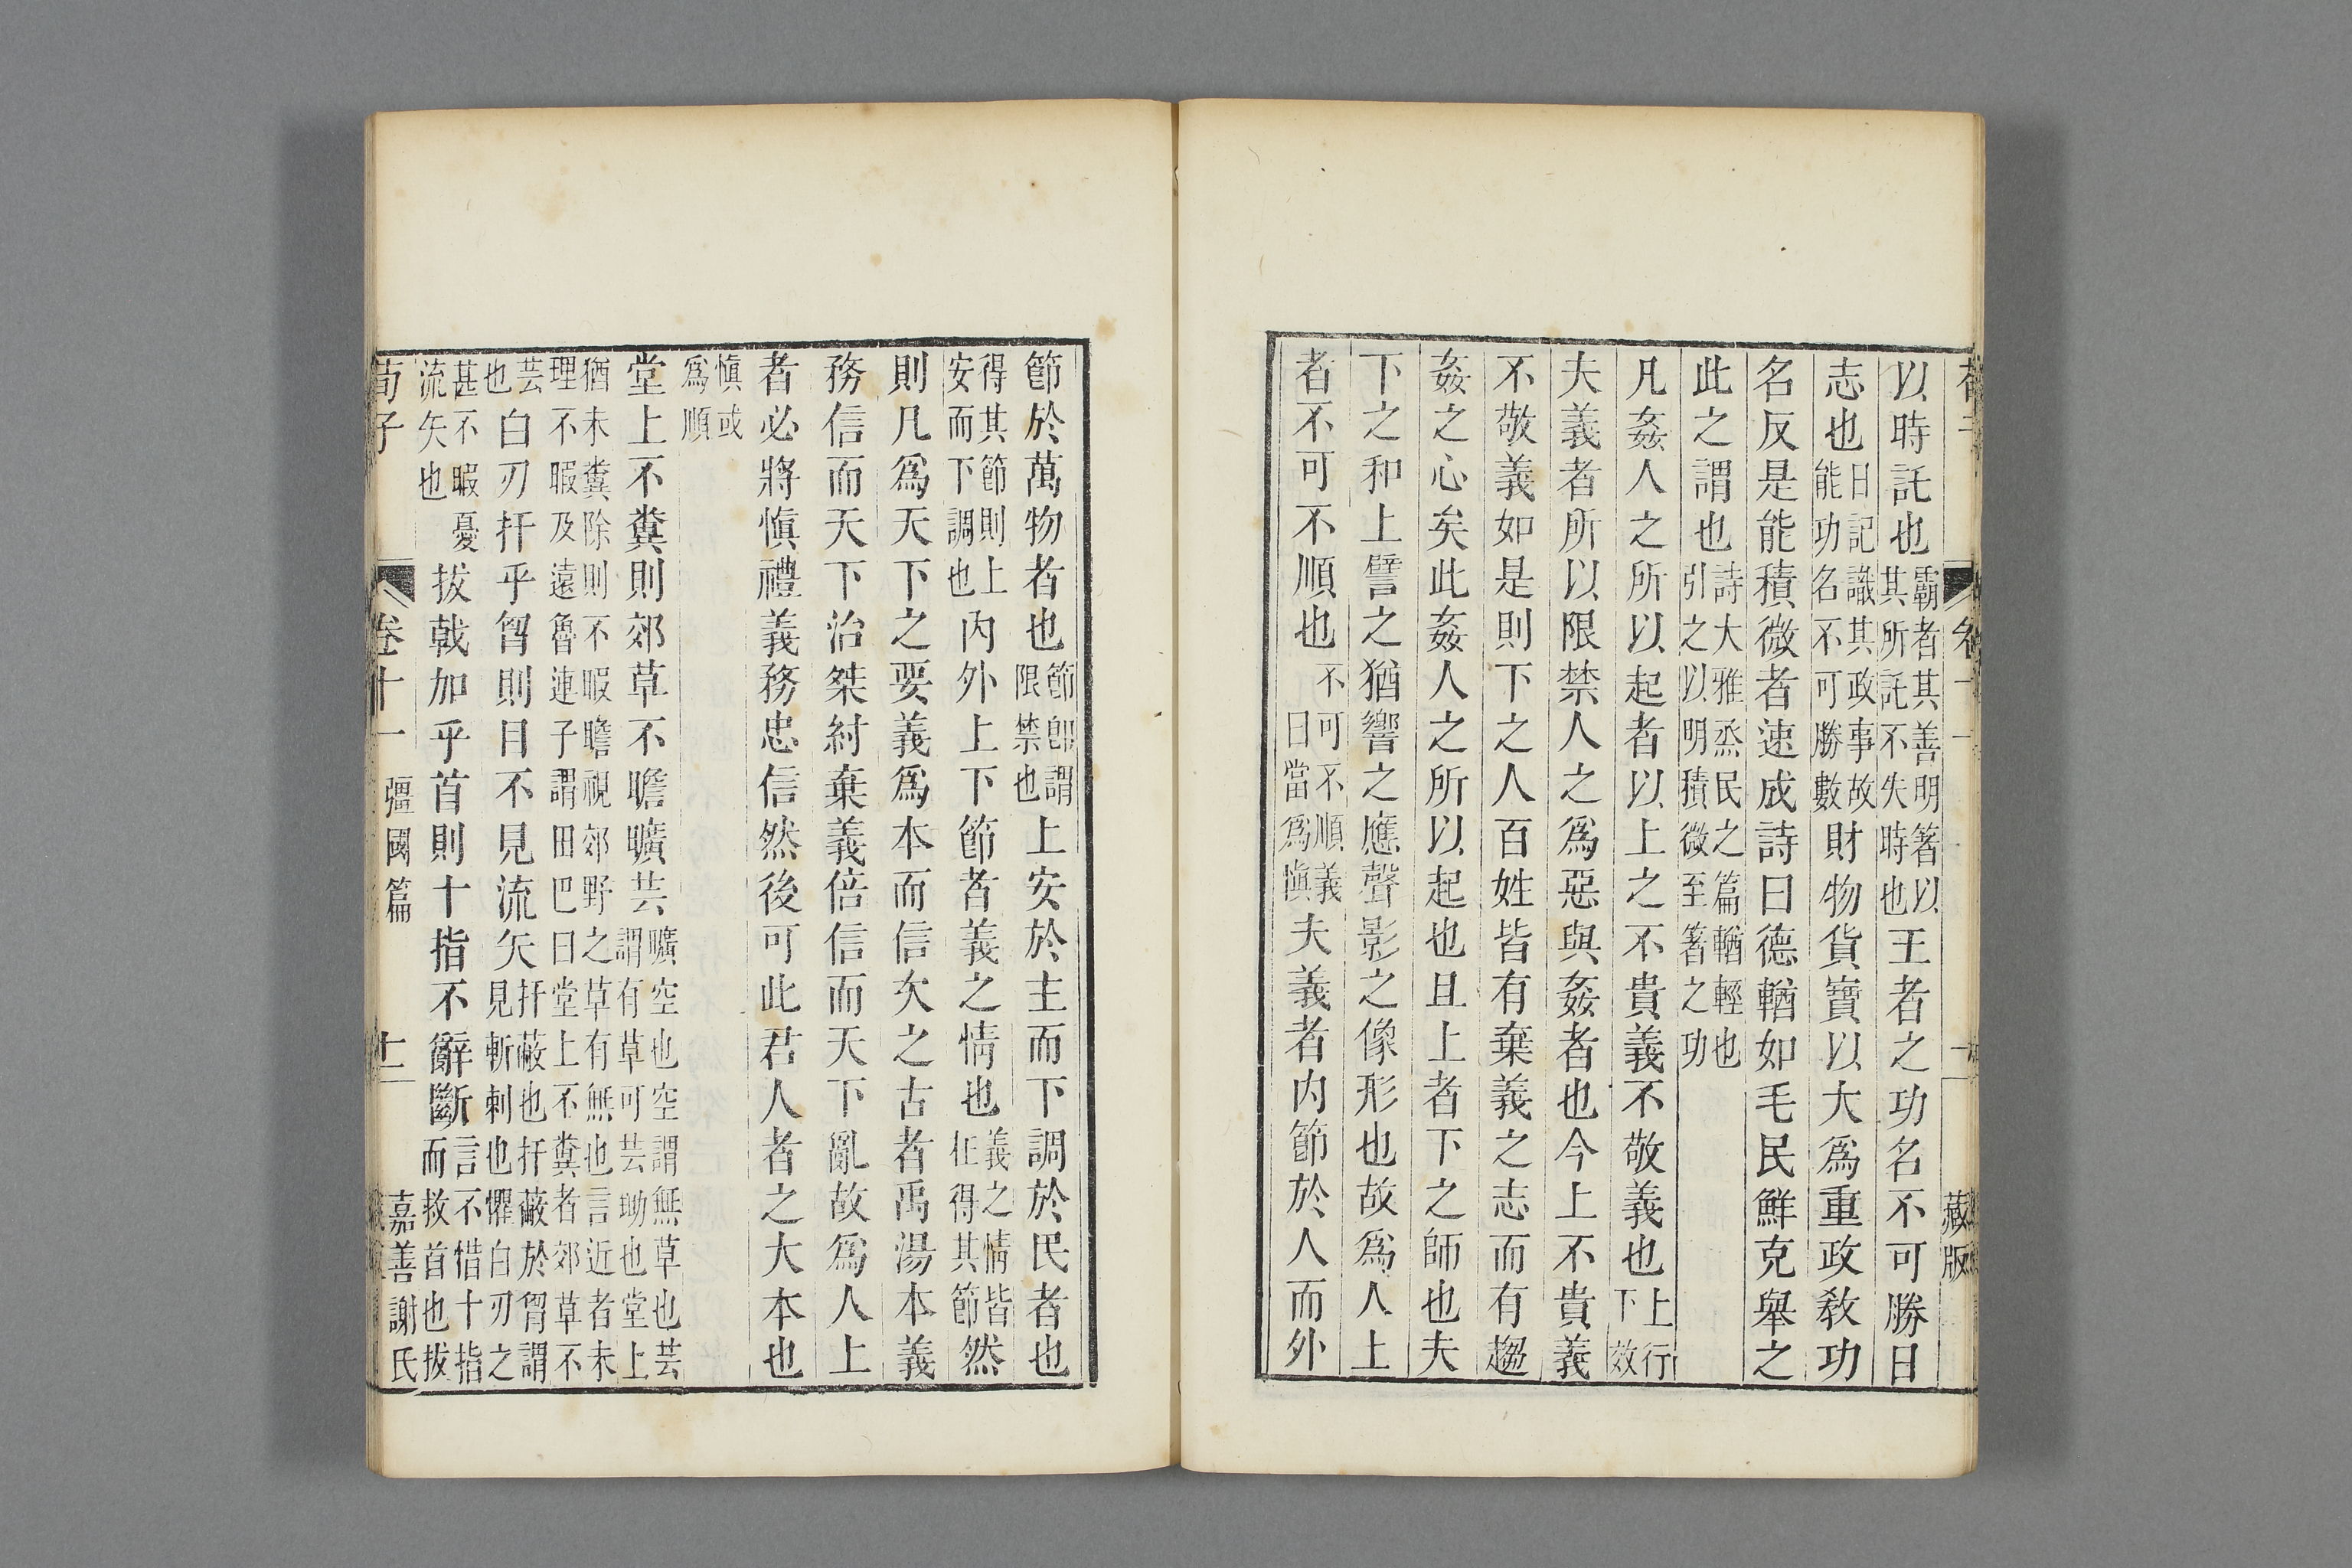 藏版
以時託也霸者其善明箸以其所託不失時也王者之功名不可勝日
志也日記識其政事故能功名不可勝數財物貨寶以大爲重政敎功
名反是能積微者速成詩曰德輶如毛民鮮克舉之
此之謂也詩大雅烝民之篇輶輕也引之以明積微至箸之功
凡姦人之所以起者以上之不貴義不敬義也上行下效
夫義者所以限禁人之爲惡與姦者也今上不貴義
不敬義如是則下之人百姓皆有棄義之志而有趨
姦之心矣此姦人之所以起也且上者下之師也夫
下之和上譬之猶響之應聲影之像形也故爲人上
者不可不順也不可不順義曰當爲愼夫義者内節於人而外
節於萬物者也節卽謂限禁也上安於主而下調於民者也
得其節則上安而下調也内外上下節者義之情也義之情皆在得其節然
則凡爲天下之要義爲本而信次之古者禹湯本義
務信而天下治桀紂棄義倍信而天下亂故爲人上
者必將愼禮義務忠信然後可此君人者之大本也
愼或爲順
堂上不糞則郊草不瞻曠芸曠空也空謂無草也芸謂有草可芸鋤也堂上
猶未糞除則不暇瞻視郊野之草有無也言近者未理不暇及遠魯連子謂田巴曰堂上不糞者郊草不
芸也白刃扞乎胷則目不見流矢扞蔽也扞蔽於胷謂見斬刺也懼白刃之
甚不暇憂流矢也拔戟加乎首則十指不辭斷言不惜十指而救首也拔
荀子 卷十一 彊國篇 十二 嘉善謝氏